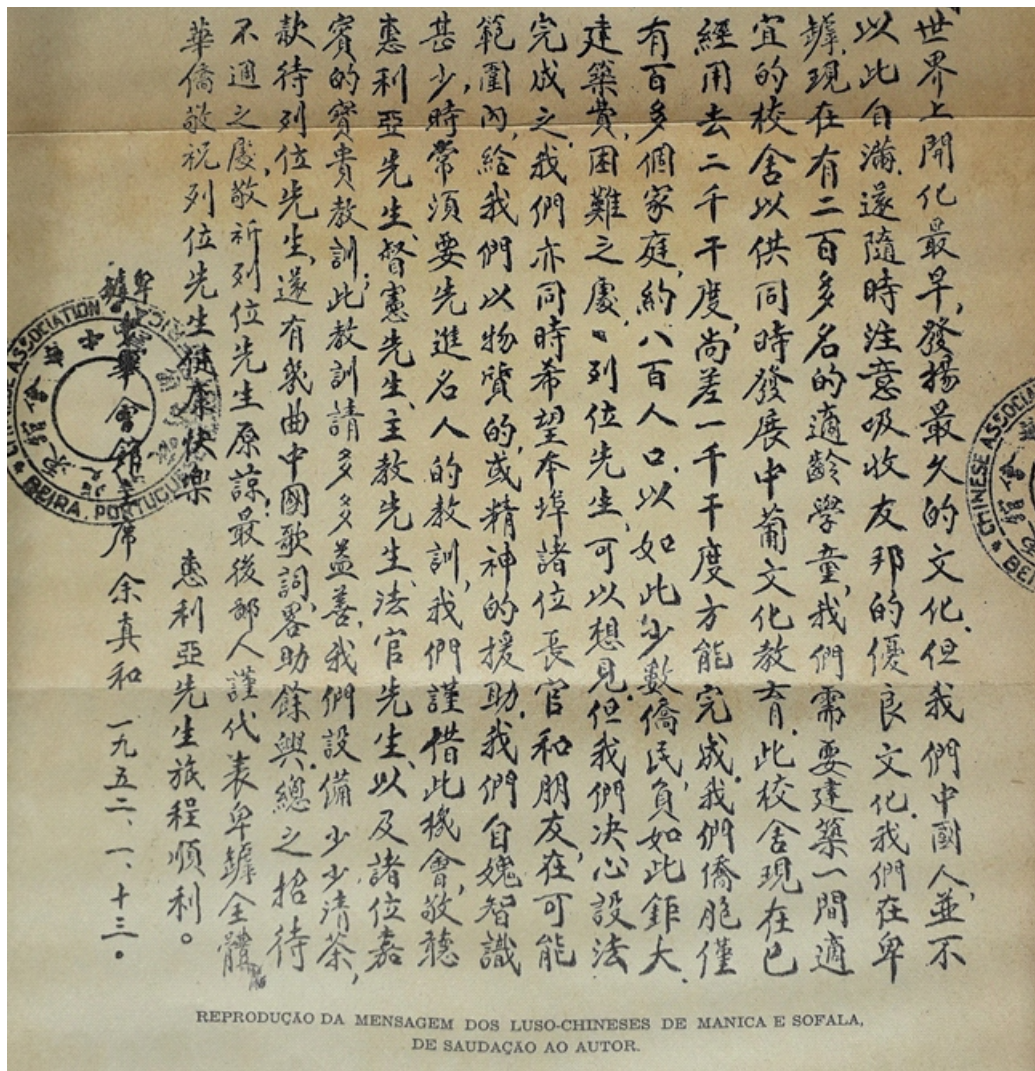 世界上開化最早，發揚最久的文化．但我們中國人，並不
以此自滿，遂隨時注意吸收友邦的優良文化．我們在卑
罅，現在有二百多名的適齡學童，我們需要建築一間適
宜的校舍以供同時發展中葡文化教育．此校舍現在已
經用去二千干度，尚差一千干度方能完成．我們僑胞僅
有百多個家庭，約八百人口．以如此少數僑民，負如此鉅大
建築費，困難之處、列位先生，可以想見．但我們决心設法
完成之，我們亦同時希望本埠諸位長官和朋友，在可能
範圍內，給我們以物質的，或精神的援助．我們自媿智識
甚少，時常須要先進名人的教訓，我們謹借此機會，敬聽
惠利亞先生、督憲先生、主教先生、法官先生、以及諸位嘉
賓的寶貴教訓；此教訓請多多益善．我們設備少少清茶，
欵待列位先生，遂有幾曲中國歌詞，畧助餘興．總之招待
不週之處，敬祈列位先生原諒．最後鄙人謹代表卑罅全體
華僑敬祝列位先生健康快樂　惠利亞先生旅程順利。
卑罅中華會館主席余真和　一九五二、一、十三。
CHINESE ASSOCIATION
BEIRA, PORTUGUESE
CHINESE ASSOC
BE
REPRODUÇÃO DA MENSAGEM DOS LUSO-CHINESES DE MANICA E SOFALA,
DE SAUDAÇÃO AO AUTOR.